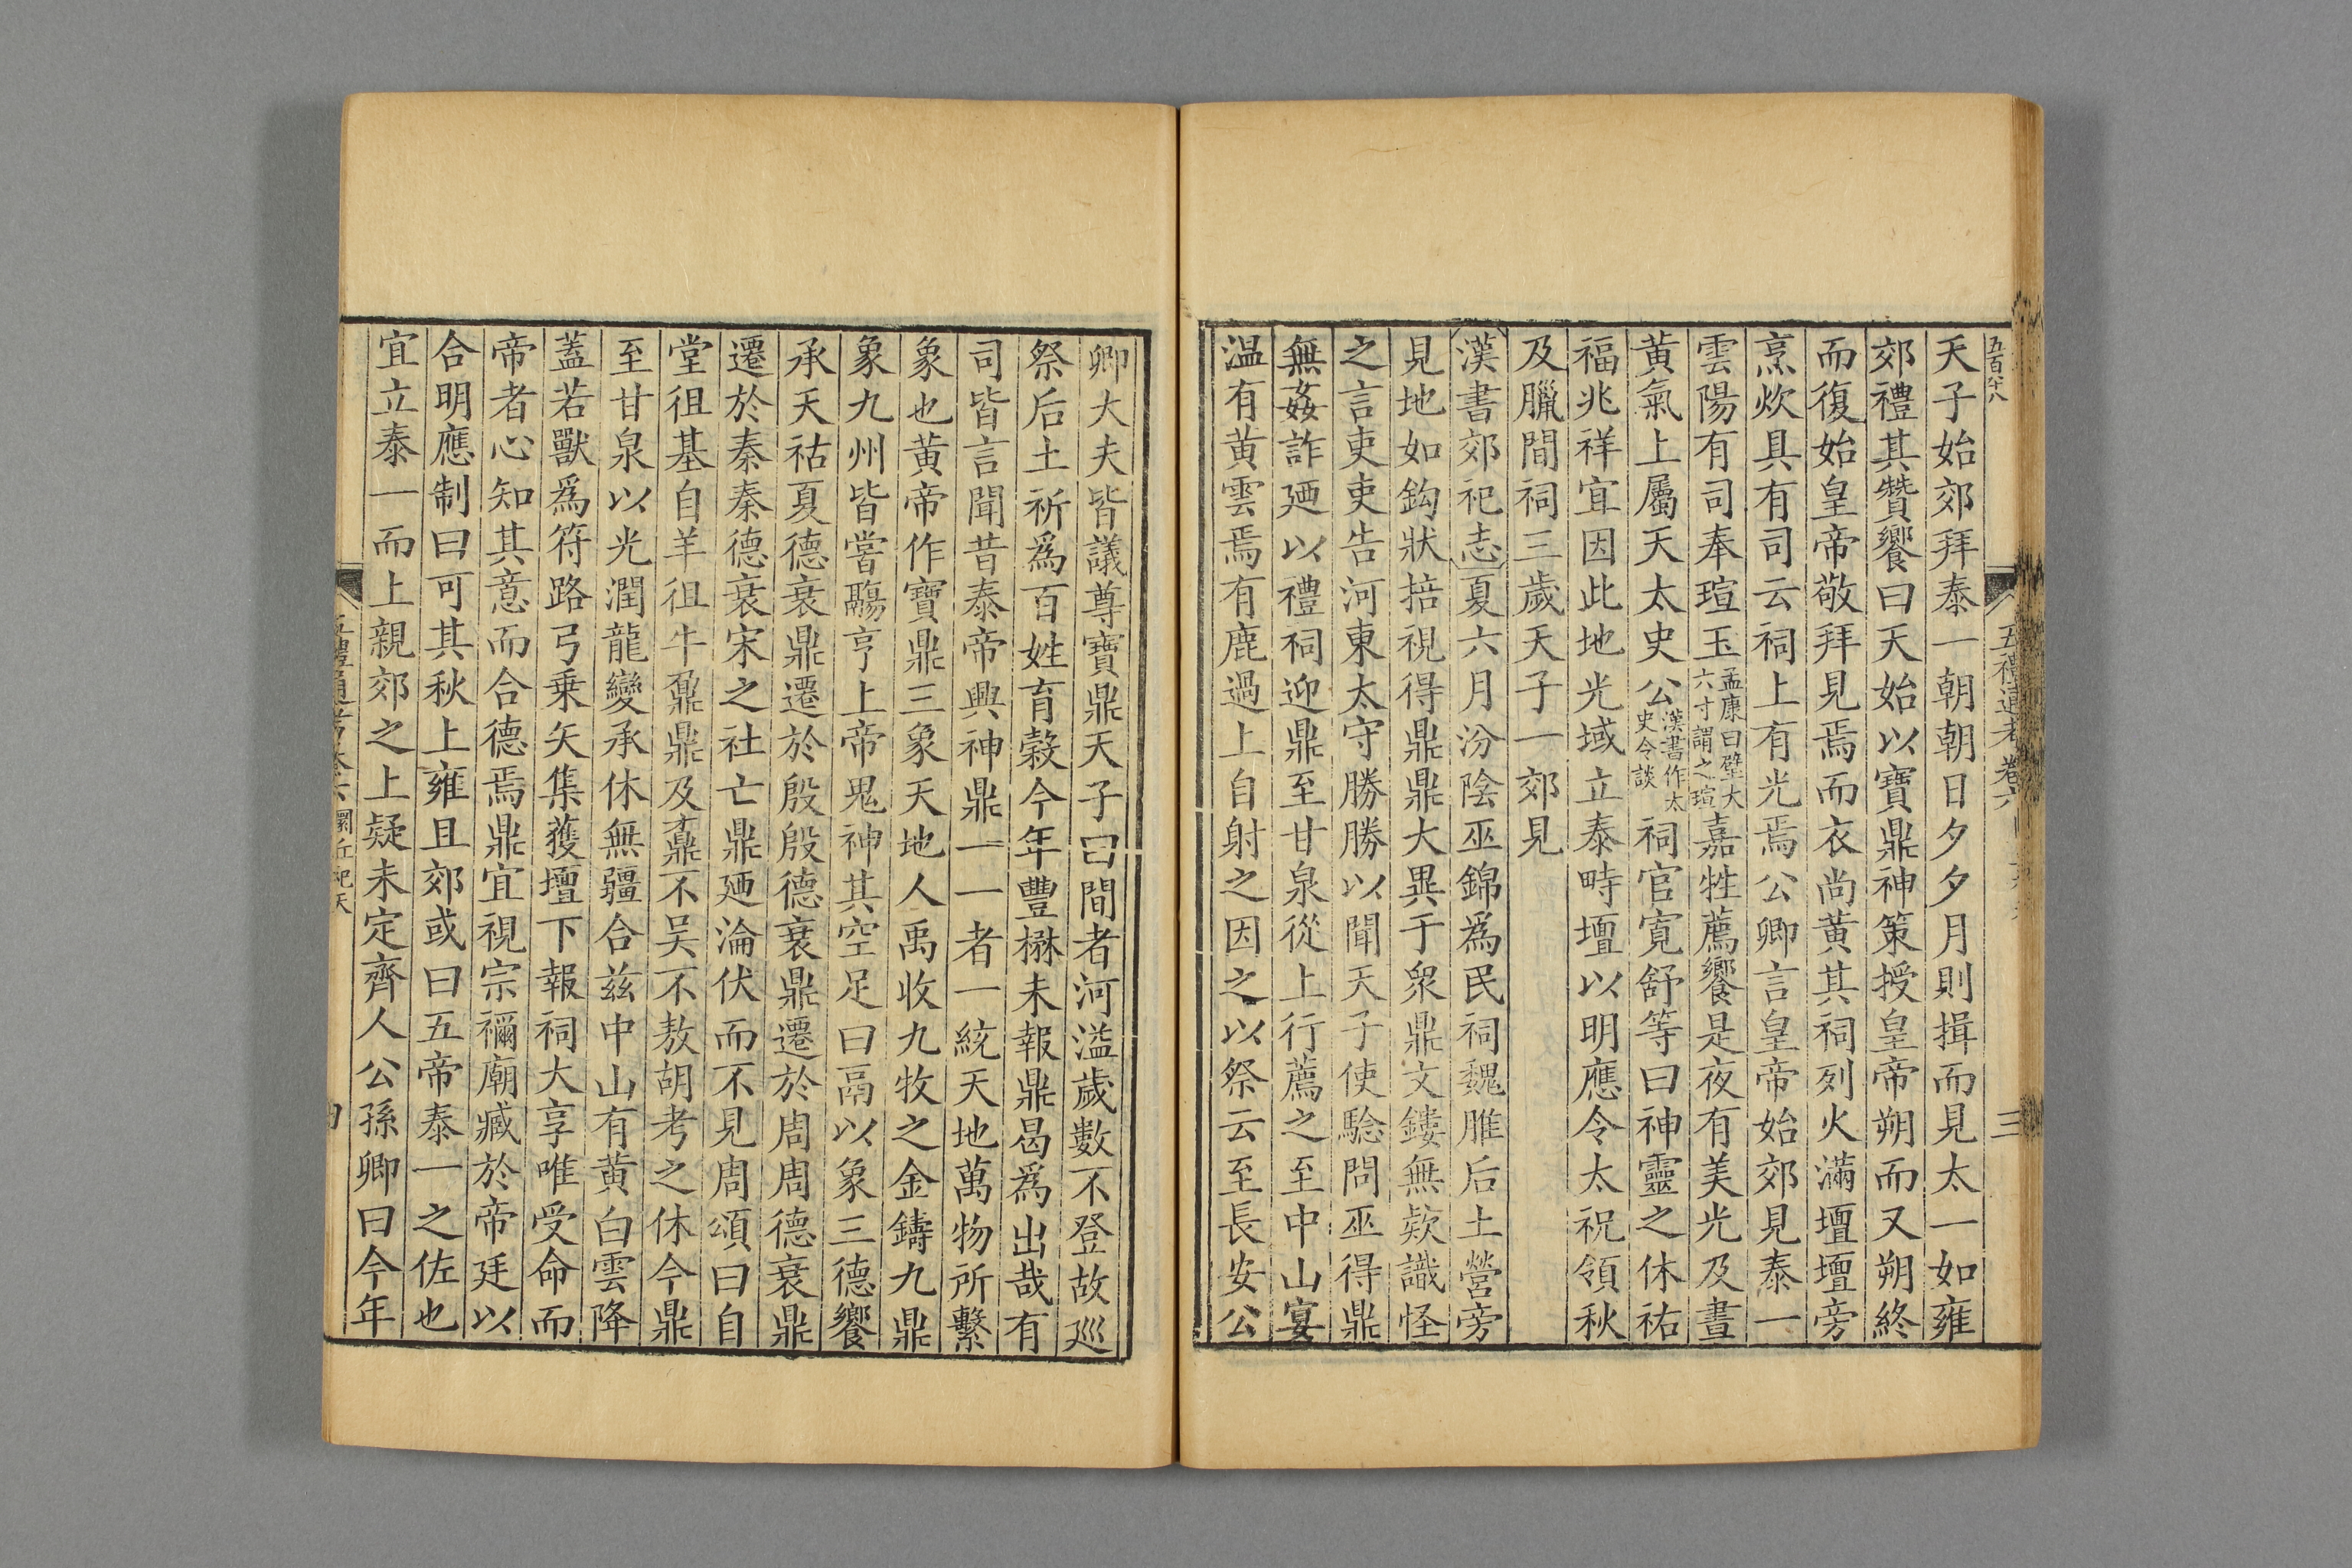 五百六八
五禮通考卷六
三
天子始郊拜泰一朝朝日夕夕月則揖而見太一如雍
郊禮其贊饗曰天始以寶鼎神策授皇帝朔而又朔終
而復始皇帝敬拜見焉而衣尚黃其祠列火滿壇壇旁
烹炊具有司云祠上有光焉公卿言皇帝始郊見泰一
雲陽有司奉瑄玉孟康曰璧大六寸謂之瑄嘉牲薦饗是夜有美光及晝
黃氣上屬天太史公漢書作太史令談祠官寬舒等曰神靈之休祐
福兆祥宜因此地光域立泰畤壇以明應令太祝領秋
及臘間祠三歲天子一郊見
漢書郊祀志夏六月汾陰巫錦爲民祠魏脽后土營旁
見地如鈎狀掊視得鼎鼎大異于衆鼎文鏤無款識怪
之言吏吏告河東太守勝勝以聞天子使驗問巫得鼎
無姦詐廼以禮祠迎鼎至甘泉從上行薦之至中山宴
温有黃雲焉有鹿過上自射之因之以祭云至長安公
卿大夫皆議尊寶鼎天子曰間者河溢歲數不登故巡
祭后土祈爲百姓育穀今年豐楙未報鼎曷爲出哉有
司皆言聞昔泰帝興神鼎一一者一統天地萬物所繫
象也黃帝作寶鼎三象天地人禹收九牧之金鑄九鼎
象九州皆嘗鬺亨上帝鬼神其空足曰鬲以象三德饗
承天祜夏德衰鼎遷於殷殷德衰鼎遷於周周德衰鼎
遷於秦秦德衰宋之社亡鼎廼淪伏而不見周頌曰自
堂徂基自羊徂牛鼐鼎及鼒不吴不敖胡考之休今鼎
至甘泉以光潤龍變承休無疆合兹中山有黃白雲降
蓋若獸爲符路弓乗矢集獲壇下報祠大享唯受命而
帝者心知其意而合德焉鼎宜視宗禰廟臧於帝廷以
合明應制曰可其秋上雍且郊或曰五帝泰一之佐也
宜立泰一而上親郊之上疑未定齊人公孫卿曰今年
五禮通考卷六 圜丘祀天